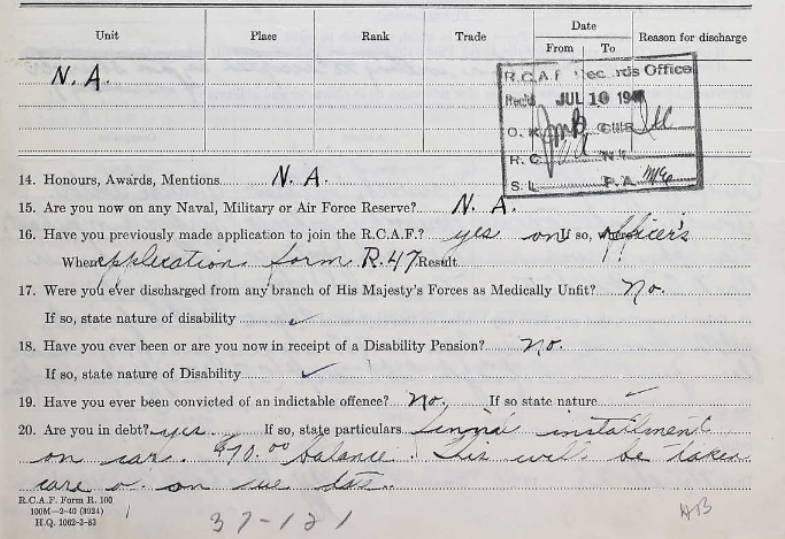 Unit Place Rank Trade Date Reason for discharge
From To
N.A.
R.C.A.F. Records Office
Rec'd JUL 10 194
O.
R.C. N.
S.L. P.A.
14. Honours, Awards, Mentions N. A.
15. Are you now on any Naval, Military or Air Force Reserve? N. A.
16. Have you previously made application to join the R.C.A.F.? yes on If so, officer's
When application form R.47 Result
17. Were you ever discharged from any branch of His Majesty's Forces as Medically Unfit? No.
If so, state nature of disability ✓
18. Have you ever been or are you now in receipt of a Disability Pension? no.
If so, state nature of Disability ✓
19. Have you ever been convicted of an indictable offence? No. If so state nature ✓
20. Are you in debt? yes If so, state particulars installment
on car. $70.00 balance. This will be taken
care on due
R.C.A.F. Form R. 100
100M—2-40 (3024)
H.Q. 1062-3-83
37-121